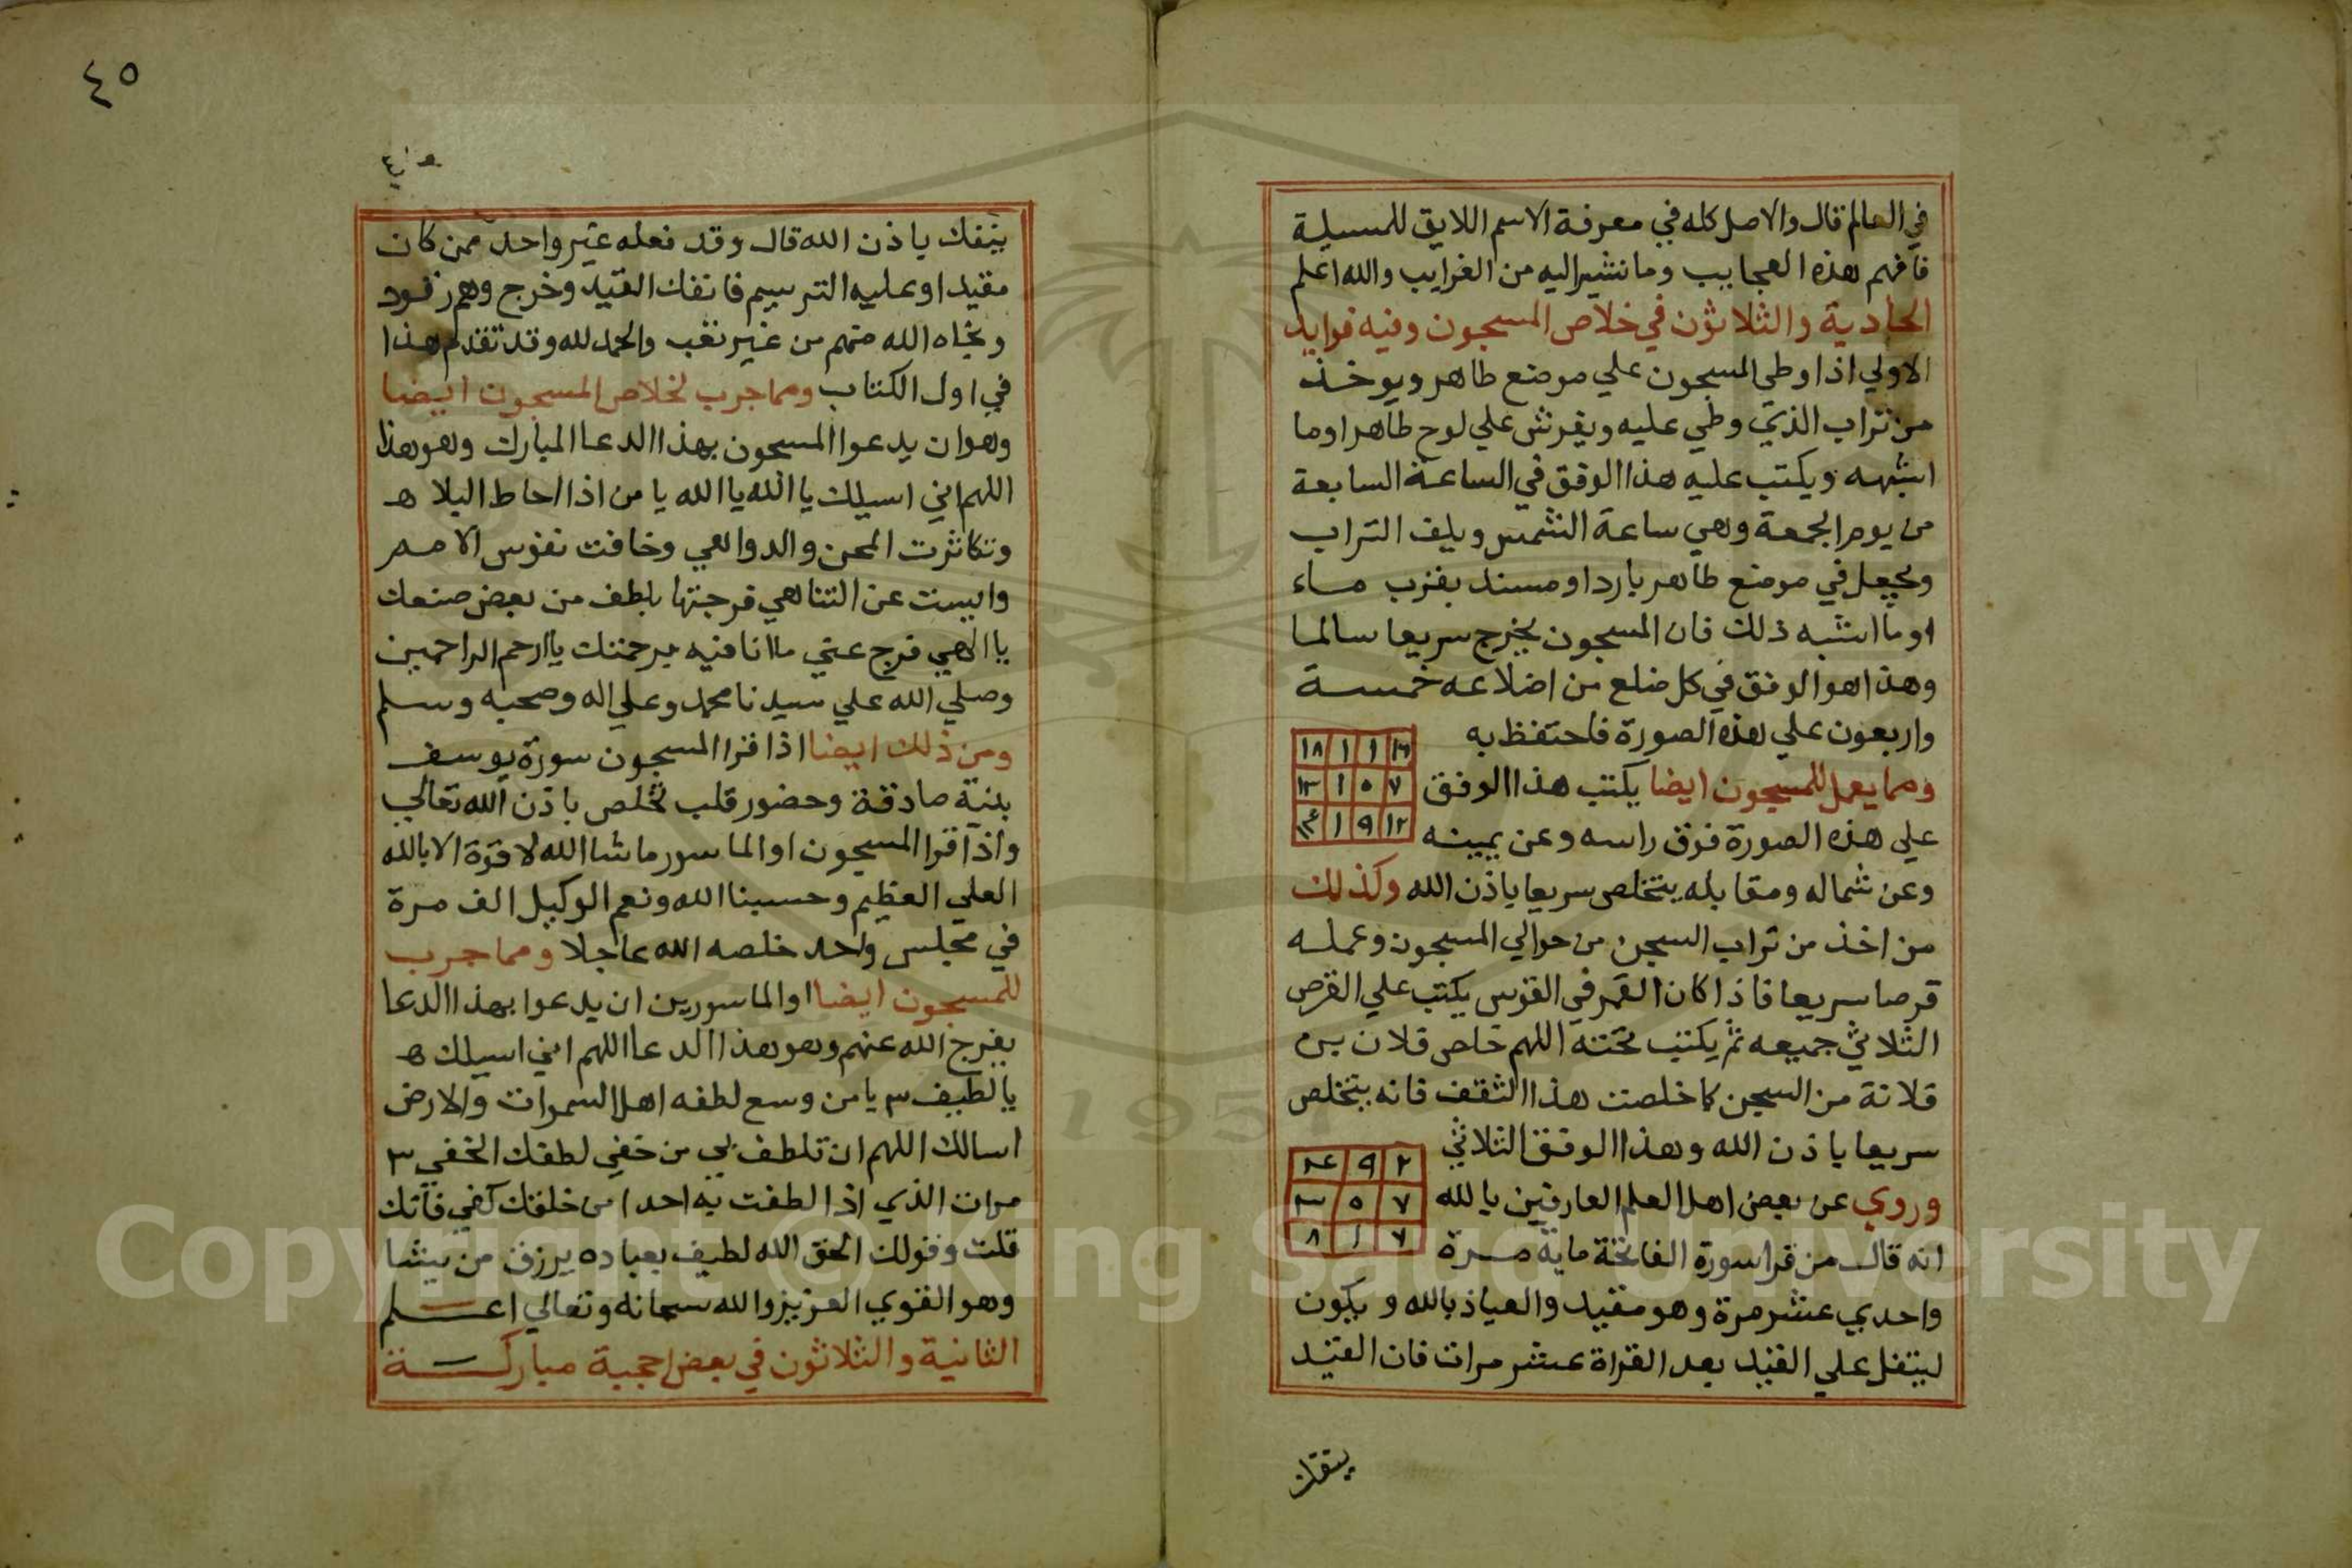 في العالم قال والاصل كله في معرفة الاسم اللايق للمسيلة
فافهم هذه العجايب وما نشير اليه من الغرايب والله اعلم
الحادية والثلاثون في خلاص المسجون وفيه فوايد
الاولي اذا وطي المسجون علي موضع طاهر ويوخذ
من تراب الذي وطي عليه ويفرش علي لوح طاهر اوما
اشبهه ويكتب عليه هذا الوفق في الساعة السابعة
من يوم الجمعة وهي ساعة الشمس ويلف التراب
ويجعل في موضع طاهر بارد او مسند بقرب ماء
اوما اشبه ذلك فان المسجون يخرج سريعا سالما
وهذا هو الوفق في كل ضلع من اضلاعه خمسة
واربعون علي هذه الصورة فاحتفظ به
ومما يعمل للمسجون ايضا يكتب هذا الوفق
علي هذه الصورة فوق راسه وعن يمينه
وعن شماله ومقابله يتخلص سريعا باذن الله وكذلك
من اخذ من تراب السجن من حوالي المسجون وعمله
قرصا سريعا فاذا كان القمر في القوس يكتب علي القرص
الثلاثي جميعه ثم يكتب تحته اللهم خلص فلان بن
فلانة من السجن كما خلصت هذا الثقف فانه يتخلص
سريعا باذن الله وهذا الوفق الثلاثي
٢ ٩ ٤
٧ ٥ ٣
٧ ١ ٨
وروي عن بعض اهل العلم العارفين بالله
انه قال من قرا سورة الفاتحة ماية مرة
واحدي عشر مرة وهو مقيد والعياذ بالله ويكون
ليتفل علي القيد بعد القراة عشر مرات فان القيد
ينفك
٤٥
ينفك باذن الله قال وقد فعله غير واحد ممن كان
مقيد او عليه الترسيم فانفك القيد وخرج وهم رقود
ونجاه الله منهم من غير تعب والحمد لله وقد تقدم هذا
في اول الكتاب ومما جرب لخلاص المسجون ايضا
وهو ان يدعوا المسجون بهذا الدعا المبارك وهو هذا
اللهم اني اسيلك يا الله يا الله يا من اذا احاط البلا ه
وتكاثرت المحن والدواهي وخافت نفوس الامم
وايست عن التناهي فرجتها بلطف من بعض صنعك
يا الهي فرج عني ما انا فيه برحمتك يا ارحم الراحمين
وصلي الله علي سيدنا محمد وعلي اله وصحبه وسلم
ومن ذلك ايضا اذا قرا المسجون سورة يوسف
بنية صادقة وحضور قلب تخلص باذن الله تعالي
واذا قرا المسجون او الماسور ما شا الله لا قوة الا بالله
العلي العظيم وحسبنا الله ونعم الوكيل الف مرة
في مجلس واحد خلصه الله عاجلا ومما جرب
للمسجون ايضا او الماسورين ان يدعوا بهذا الدعا
يفرج الله عنهم وهو هذا الدعا اللهم اني اسيلك ه
يا لطيف ٣ يا من وسع لطفه اهل السموات والارض
اسالك اللهم ان تلطف بي من خفي لطفك الخفي ٣
مرات الذي اذا لطفت به احدا من خلقك كفي فانك
قلت وقولك الحق الله لطيف بعباده يرزق من يشا
وهو القوي العزيز والله سبحانه وتعالي اعلم
الثانية والثلاثون في بعض احجبة مباركة
Copyright © King Saud University
1957